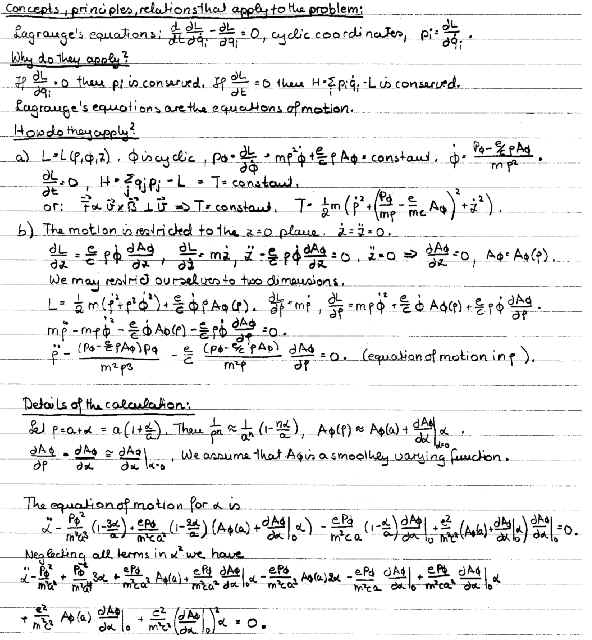 Concepts, principles, relations that apply to the problem:
Lagrange's equations: d/dt ∂L/∂q̇ᵢ - ∂L/∂qᵢ = 0, cyclic coordinates, pᵢ = ∂L/∂q̇ᵢ.
Why do they apply?
If ∂L/∂qᵢ = 0 then pᵢ is conserved. If ∂L/∂t = 0 then H = Σᵢ pᵢq̇ᵢ - L is conserved.
Lagrange's equations are the equations of motion.
How do they apply?
a) L = L(ρ,φ,z). φ is cyclic, pφ = ∂L/∂φ̇ = mρ²φ̇ + e/c ρAφ = constant. φ̇ = (pφ - e/c ρAφ)/(mρ²).
∂L/∂t = 0, H = Σⱼ q̇ⱼpⱼ - L = T = constant.
or: F⃗ ∝ v⃗ × B⃗ ⊥ v⃗ ⇒ T = constant. T = ½m(ρ̇² + (pφ/mρ - e/mc Aφ)² + ż²).
b) The motion is restricted to the z=0 plane. ż = z̈ = 0.
∂L/∂z = e/c ρφ̇ ∂Aφ/∂z, ∂L/∂ż = mż, z̈ - e/c ρφ̇ ∂Aφ/∂z = 0, z̈ = 0 ⇒ ∂Aφ/∂z = 0, Aφ = Aφ(ρ).
We may restrict ourselves to two dimensions.
L = ½m(ρ̇² + ρ²φ̇²) + e/c φ̇ρAφ(ρ). ∂L/∂ρ̇ = mρ̇, ∂L/∂ρ = mρφ̇² + e/c φ̇ Aφ(ρ) + e/c ρφ̇ ∂Aφ/∂ρ.
mρ̈ - mρφ̇² - e/c φ̇Aφ(ρ) - e/c ρφ̇ ∂Aφ/∂ρ = 0.
ρ̈ - (pφ - e/c ρAφ)pφ/(m²ρ³) - e/c (pφ - e/c ρAφ)/(m²ρ) ∂Aφ/∂ρ = 0. (equation of motion in ρ).
Details of the calculation:
Let ρ = a+α = a(1+α/a). Then 1/ρⁿ ≈ 1/aⁿ (1 - nα/a), Aφ(ρ) ≈ Aφ(a) + ∂Aφ/∂α|α=0 α.
∂Aφ/∂ρ = ∂Aφ/∂α ≅ ∂Aφ/∂α|α=0, We assume that Aφ is a smoothly varying function.
The equation of motion for α is
α̈ - pφ²/m²a³ (1-3α/a) + epφ/m²ca² (1-2α/a)(Aφ(a) + ∂Aφ/∂α|₀ α) - epφ/m²ca (1-α/a) ∂Aφ/∂α|₀ + e²/m²c² (Aφ(a) + ∂Aφ/∂α|₀ α) ∂Aφ/∂α|₀ = 0.
Neglecting all terms in α² we have
α̈ - pφ²/m²a³ + pφ²/m²a⁴ 3α + epφ/m²ca² Aφ(a) + epφ/m²ca² ∂Aφ/∂α|₀ α - epφ/m²ca³ Aφ(a)2α - epφ/m²ca ∂Aφ/∂α|₀ + epφ/m²ca² ∂Aφ/∂α|₀ α
+ e²/m²c² Aφ(a) ∂Aφ/∂α|₀ + e²/m²c² (∂Aφ/∂α|₀)² α = 0.